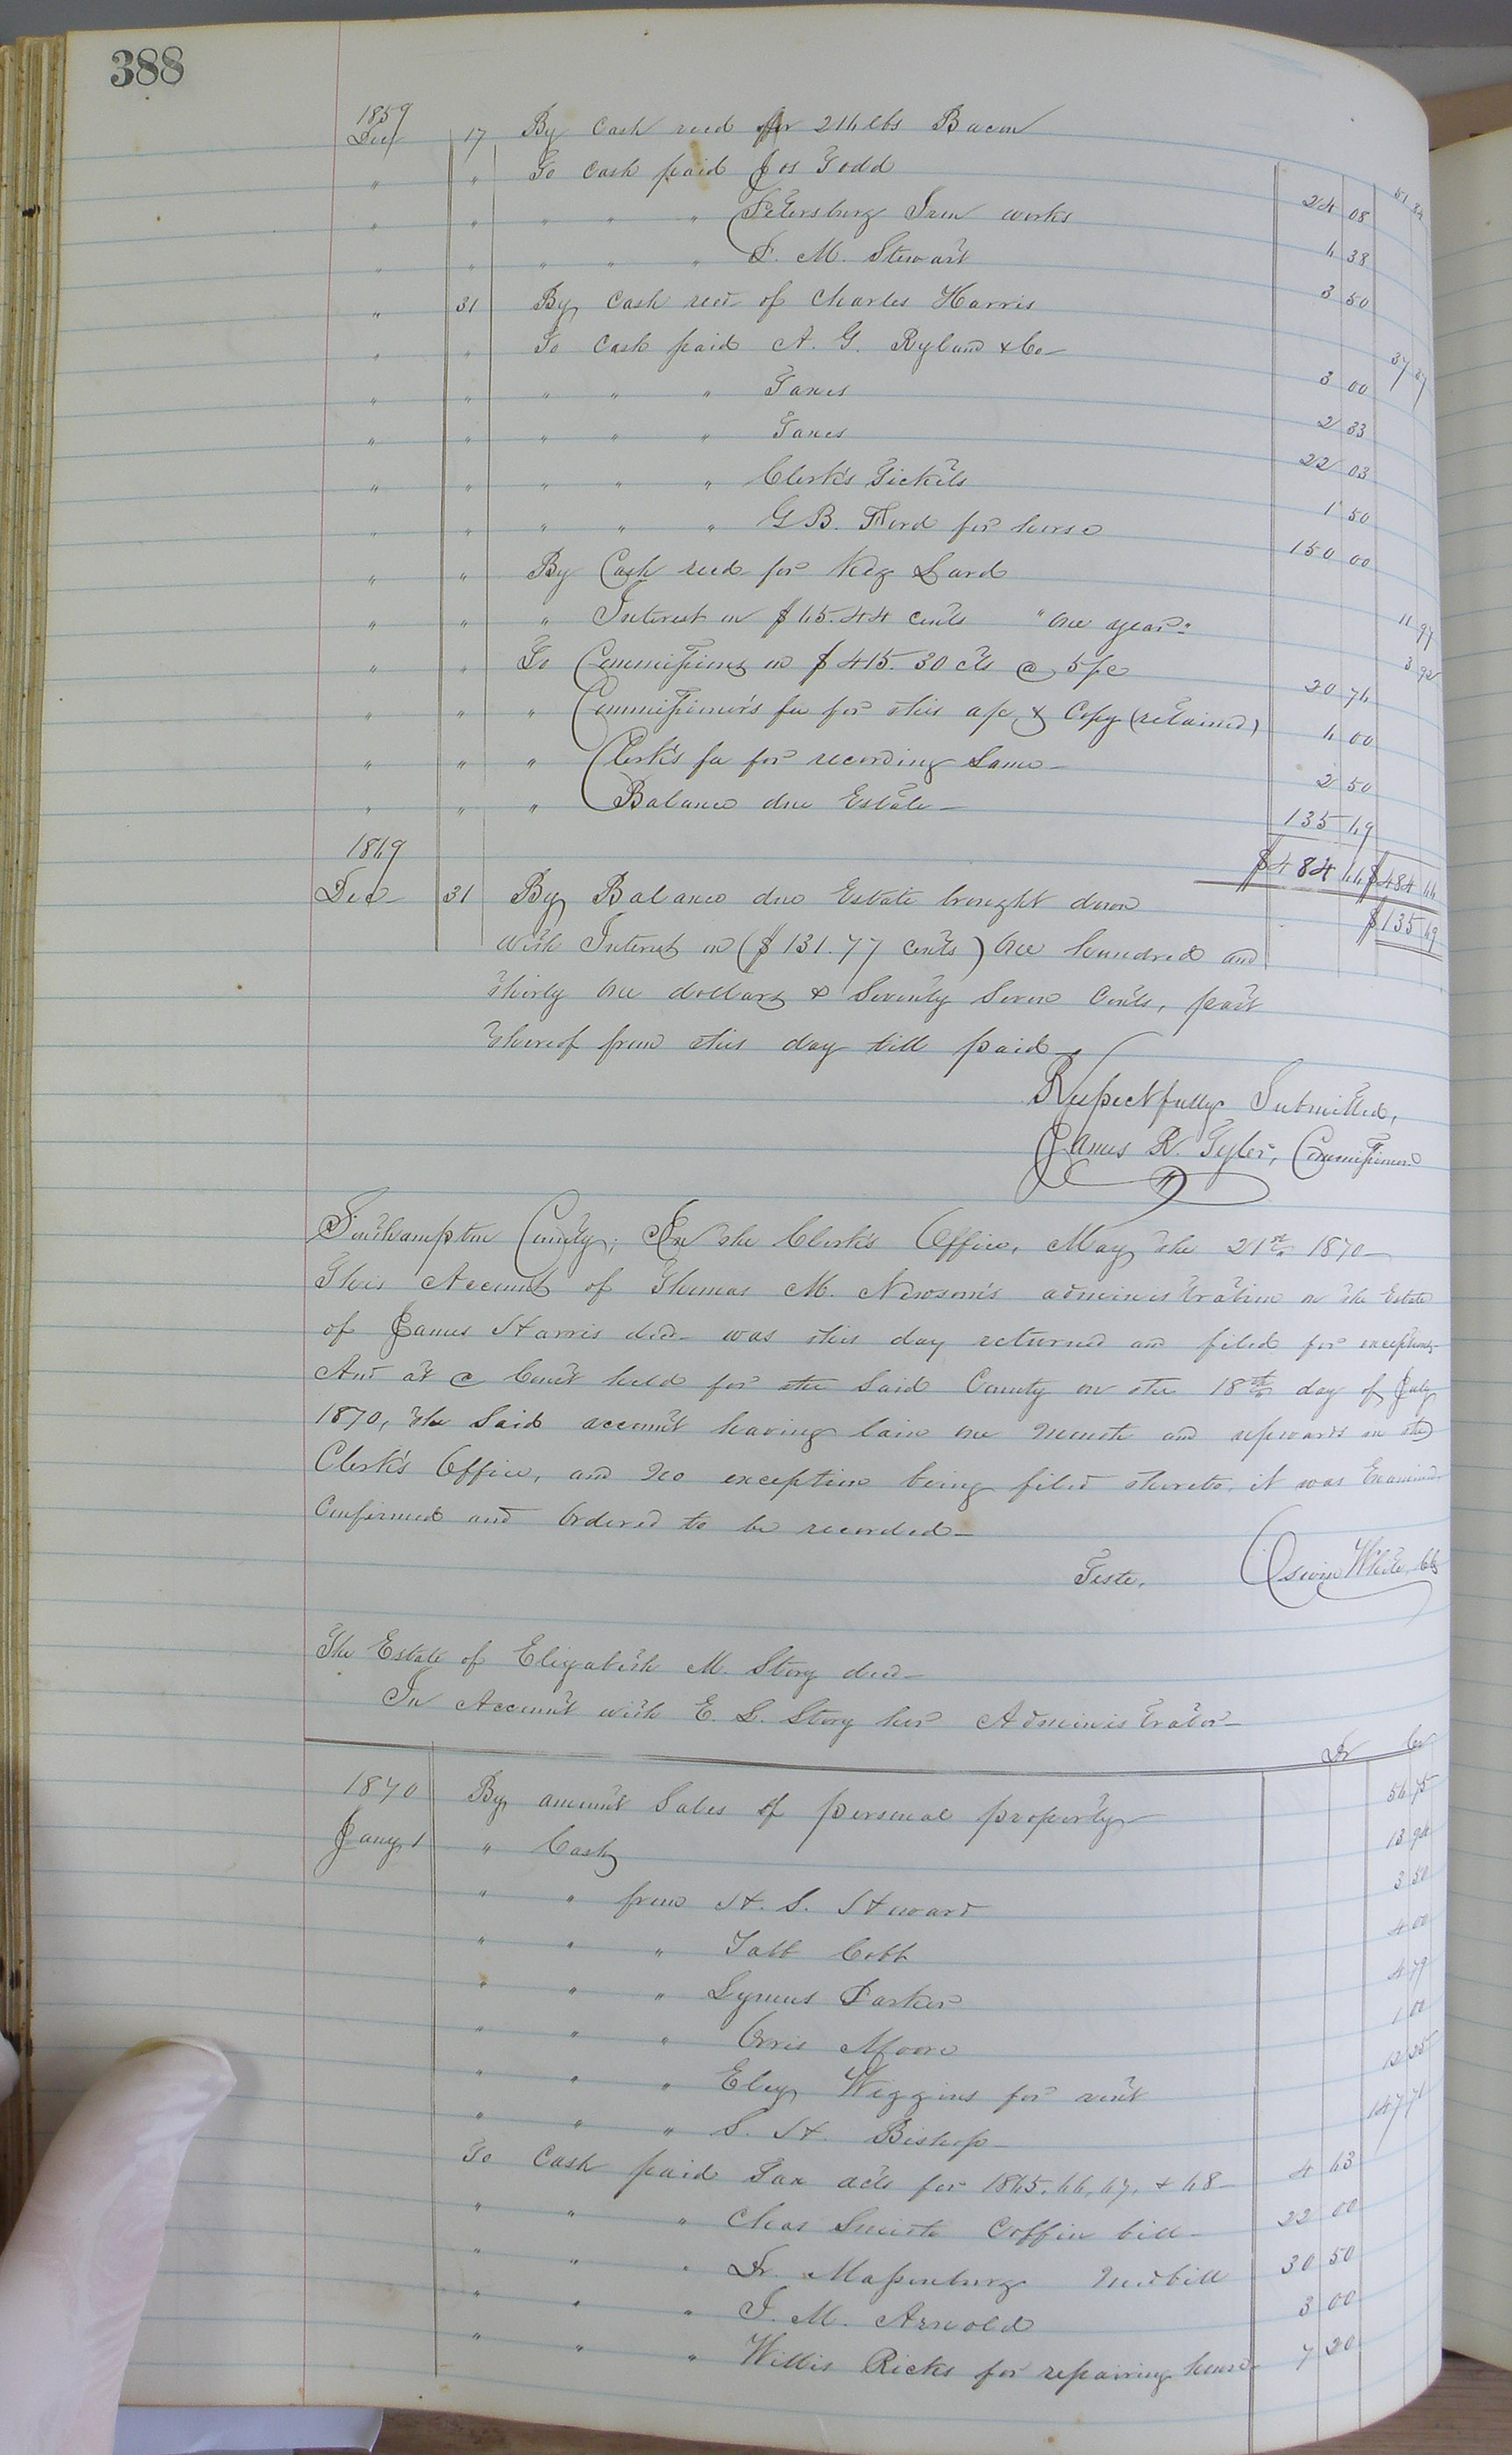 388
1859
Dec 17 By Cash recd for 216 lbs Bacon 51 84
" " To Cash paid Jos Todd 24 08
" " " " " Petersburg Iron works 6 38
" " " " " P. M. Stewart 3 50
" 31 By Cash recd of Charles Harris 37 27
" " To Cash paid A. G. Ryland & Co 3 00
" " " " " Taxes 2 33
" " " " " Taxes 22 03
" " " " " Clerk's Tickets 1 50
" " " " " G B. Ford for horse 150 00
" " By Cash recd for Keg Lard 11 97
" " " Interest on $65.44 cents "one year" 3 92
" " To Commissions on $415.30 cts @ 5 pc 20 76
" " " Commissioner's fee for this a/c & Copy (retained) 6 00
" " " Clerk's fee for recording Same 2 50
" " " Balance due Estate 135 69
$484 66 $484 66
1869
Dec 31 By Balance due Estate brought down $135 69
with Interest on ($131.77 cents) One hundred and
thirty one dollars & Seventy Seven Cents, part
thereof from this day till paid
Respectfully Submitted,
James R. Tyler, Commissioner
Southampton County; In the Clerk's Office, May the 21st 1870
This Account of Thomas M. Newsom's administration on the Estate
of James Harris decd was this day returned and filed for exceptions
And at a Court held for the Said County on the 18th day of July
1870, the Said account having lain one month and upwards in the
Clerk's Office, and no exception being filed thereto, it was Examined
Confirmed and Ordered to be recorded
Teste, White, Clk
The Estate of Elizabeth M. Story decd
In Account with E. S. Story her Administrator
Dr Cr
1870 By amount Sales of personal property 56 75
Jany 1 " Cash 13 94
" " from H. S. Steward 3 50
" " " Tabb Cobb 4 00
" " " Lymus Parker 4 79
" " " Orris Moore 1 00
" " " Eley Wiggins for rent 12 25
" " " S. H. Bishop 147 71
To Cash paid Tax acts for 1865, 66, 67, & 68 4 63
" " " Chas Smith Coffin bill 22 00
" " " Dr. Massenburg Med bill 30 50
" " " J. M. Arnold 3 00
" " " Willis Ricks for repairing house 7 20